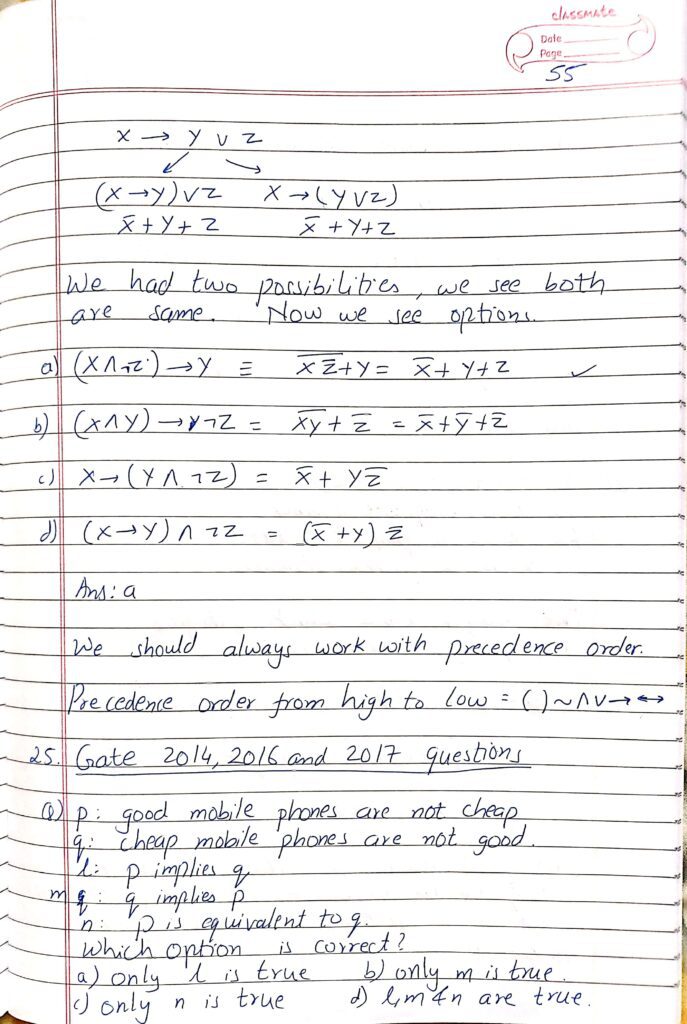 classmate
Date
Page
55
X → Y ∨ Z
(X→Y)∨Z X→(Y∨Z)
X̄+Y+Z X̄+Y+Z
We had two possibilities, we see both
are same. Now we see options.
a) (X∧¬Z)→Y ≡ \overline{X Z̄}+Y = X̄+Y+Z ✓
b) (X∧Y)→¬Z = \overline{XY}+Z̄ = X̄+Ȳ+Z̄
c) X→(Y∧¬Z) = X̄+YZ̄
d) (X→Y)∧¬Z = (X̄+Y)Z̄
Ans: a
We should always work with precedence order.
Precedence order from high to low = ()~∧∨→↔
25. Gate 2014, 2016 and 2017 questions
Q) p: good mobile phones are not cheap
q: cheap mobile phones are not good.
l: p implies q
m: q implies p
n: p is equivalent to q.
Which option is correct?
a) only l is true b) only m is true.
c) only n is true d) l,m & n are true.